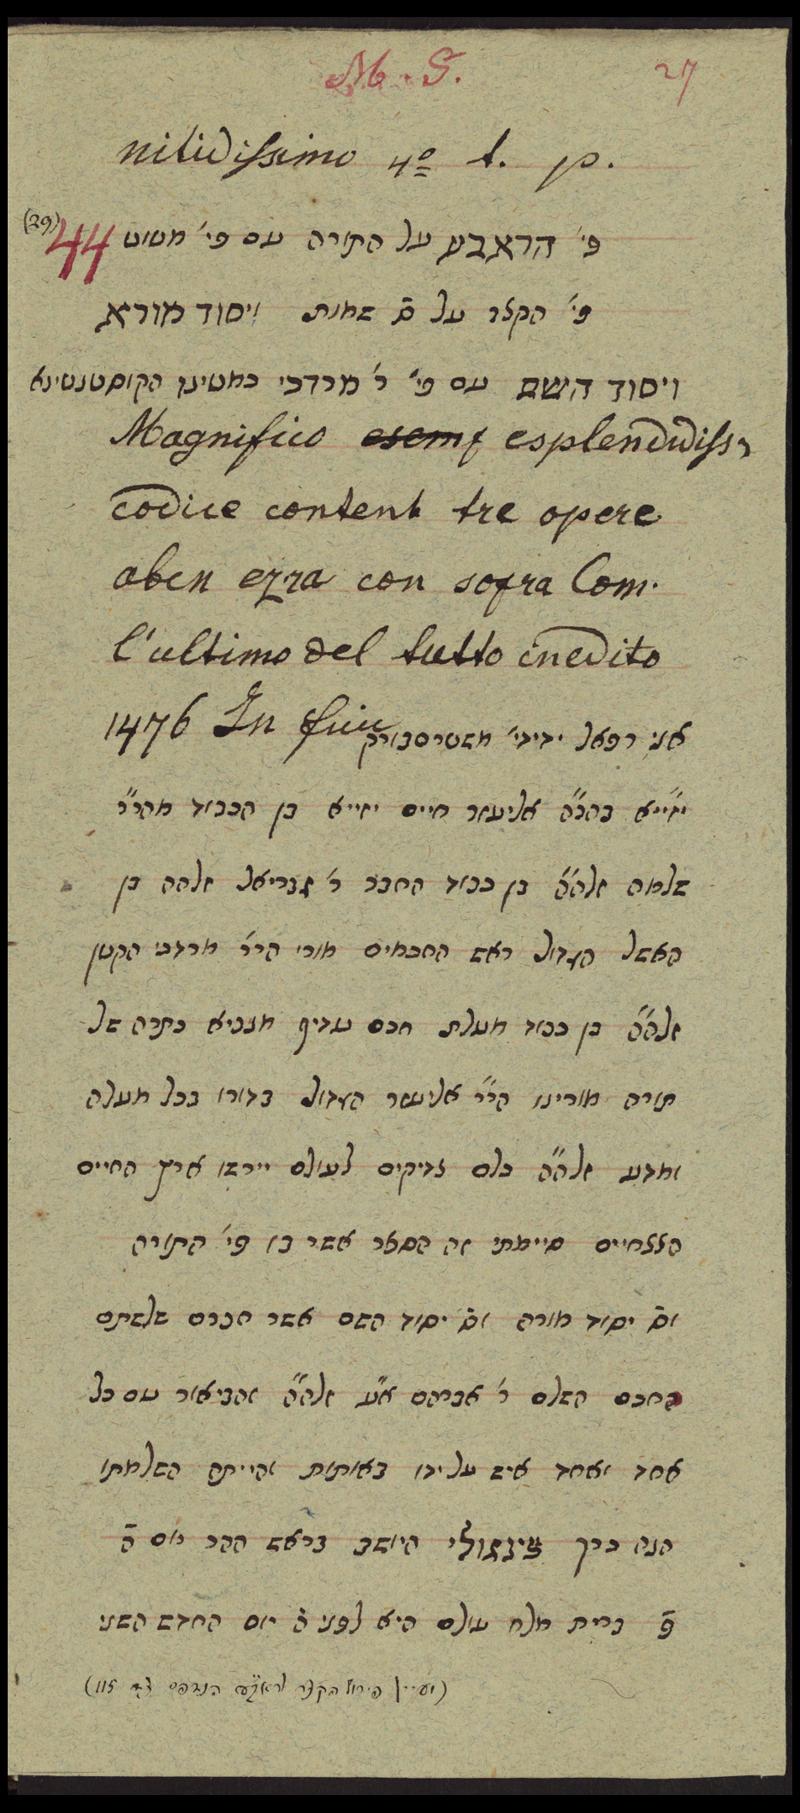 M. S. 27
nitidissimo 4º t. p.
(29) 44 פי׳ הראבע על התורה עם פי׳ מטוט
פי׳ הקצר על ס׳ שמות ויסוד מורא
ויסוד השם עם פי׳ ר׳ מרדכי כמטינו הקוסטנטינא
Magnifico esplendidiss
codice content tre opere
aben ezra con sopra Com.
l'ultimo del tutto inedito
1476 In fine אני רפאל ידידי׳ משטרסבורק
יזייא בהכ״ה אליעזר חיים יזייא בן הכבוד מהר״ר
שלמה זלה״ה בן כבוד החבר ר׳ גבריאל זלהה בן
האשל הגדול ראש החכמים מורי הר״ר מרדכי הקטן
זלה״ה בן כבוד מעלת חכם עדיף מנביא כתרה של
תורה מורינו הר״ר אליעזר הגדול בדורו בכל מעלה
ומדע זלה״ה כלם צדיקים לעולם יירשו ארץ החיים
הנצחיים סיימתי זה הספר אשר בו פי׳ התורה
וס׳ יסוד מורה וס׳ יסוד השם אשר חברם שלשתם
החכם השלם ר׳ אברהם א״ע זלה״ה והביאור עם כל
אחד ואחד איש על ידו באותות והייתה השלמתו
הנה ברך צינגולי היושב בראש ההר יום ה׳
פ׳ ברית מלח עולם היא לפני ה׳ יום החדש השני
(ועיין פירוש הקצר לראב״ע הנדפס צד 115)